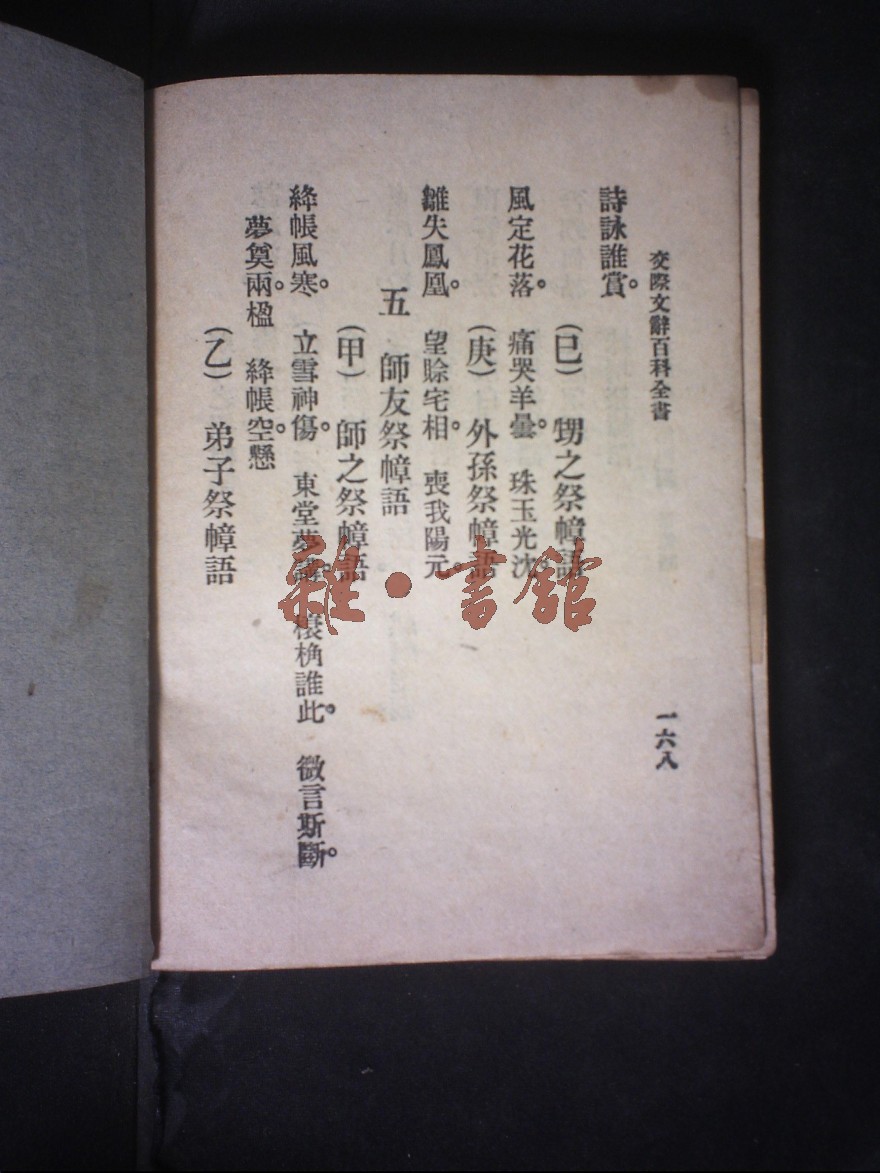 交際文辭百科全書
一六八
詩詠誰賞。
(巳) 甥之祭幛語
風定花落。 痛哭羊曇。 珠玉光沈。
(庚) 外孫祭幛語
雛失鳳凰。 望賒宅相。 喪我陽元。
五 師友祭幛語
(甲) 師之祭幛語
絳帳風寒。 立雪神傷。 東堂夢 榱桷誰此。 微言斯斷。
夢奠兩楹。 絳帳空懸
(乙) 弟子祭幛語
雜·書館